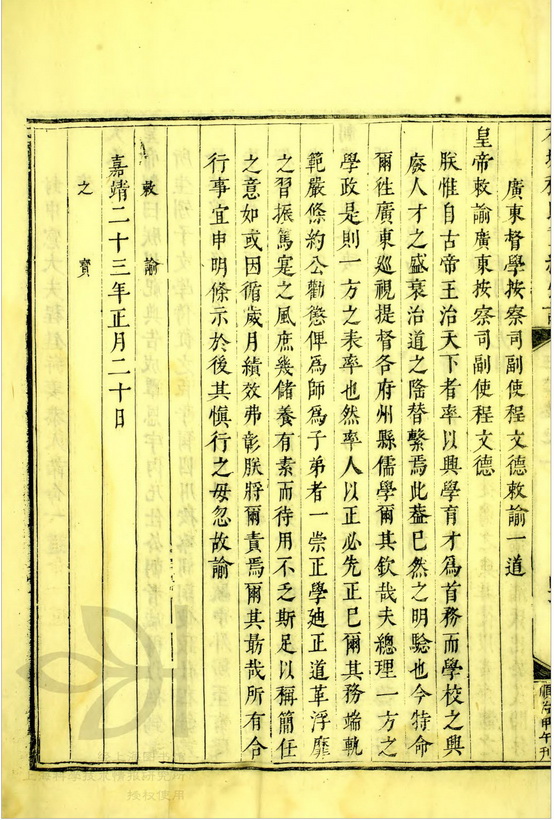 廣東督學按察司副使程文德敕諭一道
皇帝敕諭廣東按察司副使程文德
朕惟自古帝王治天下者率以興學育才為首務而學校之興
廢人才之盛衰治道之隆替繫焉此葢已然之明驗也今特命
爾徃廣東廵視提督各府州縣儒學爾其欽哉夫總理一方之
學政是則一方之表率也然率人以正必先正已爾其務端軌
範嚴條約公勸懲俾為師為子弟者一崇正學廸正道革浮靡
之習振篤寔之風庶幾儲養有素而待用不乏斯足以稱簡任
之意如或因循歲月績效弗彰朕將爾責焉爾其朂哉所有合
行事宜申明條示於後其慎行之毋忽故諭
敕諭
嘉靖二十三年正月二十日
之寳
順治甲午刊
授权使用